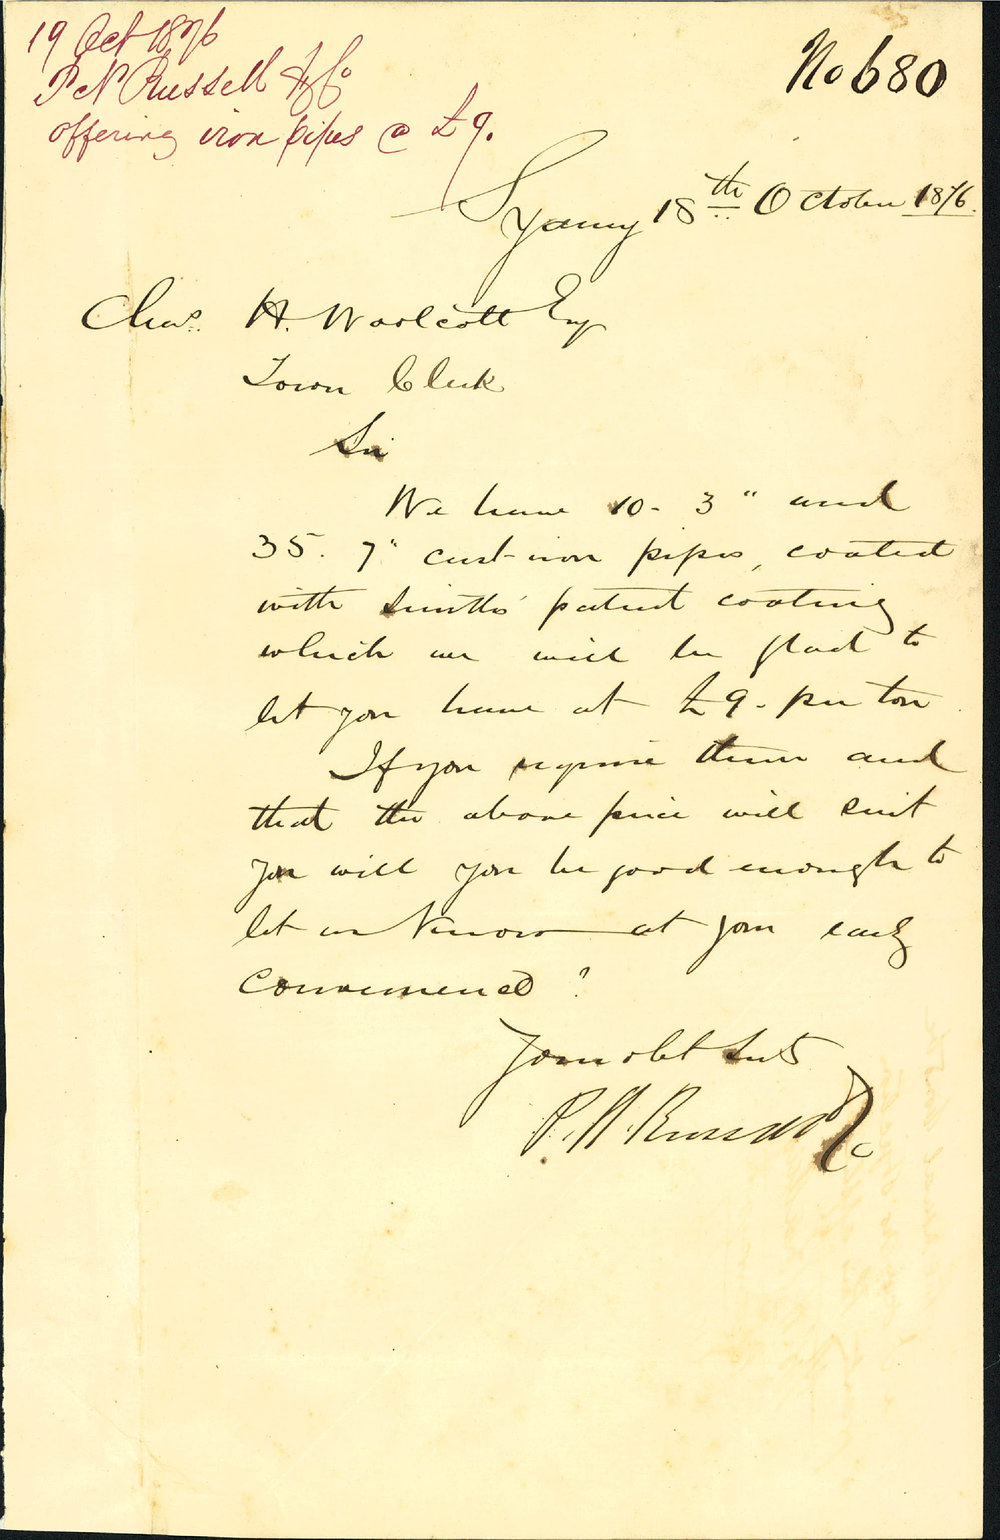 19 Oct 1876
P N Russell & Co
offering iron pipes @ £9.
No 680
Sydney 18th October 1876.
Chas. H. Woolcott Esq
Town Clerk
Sir
We have 10 - 3" and
35. 7" cast-iron pipes, coated
with Smiths' patent coating
which we will be glad to
let you have at £9 - per ton
If you require them and
that the above price will suit
you will you be good enough to
let us know at your early
convenience?
Your obt Svts
P. N. Russell & Co